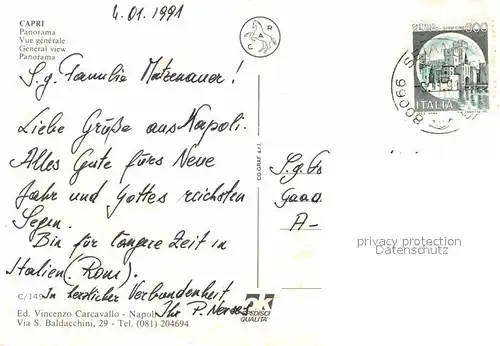 4.01.1991
CAPRI
Panorama
Vue générale
General view
Panorama
CAR
600
ITALIA
80066
S.g. Familie Matzenauer!
Liebe Grüße aus Napoli.
Alles Gute fürs Neue
Jahr und Gottes reichsten
Segen.
Bin für längere Zeit in
Italien (Rom).
In herzlicher Verbundenheit
Ihr P.
C/149
Ed. Vincenzo Carcavallo - Napoli
Via S. Baldacchini, 29 - Tel. (081) 204694
CO.GRAF s.r.l.
SPEDISCI
QUALITÀ
S.g.
A-
privacy protection
Datenschutz